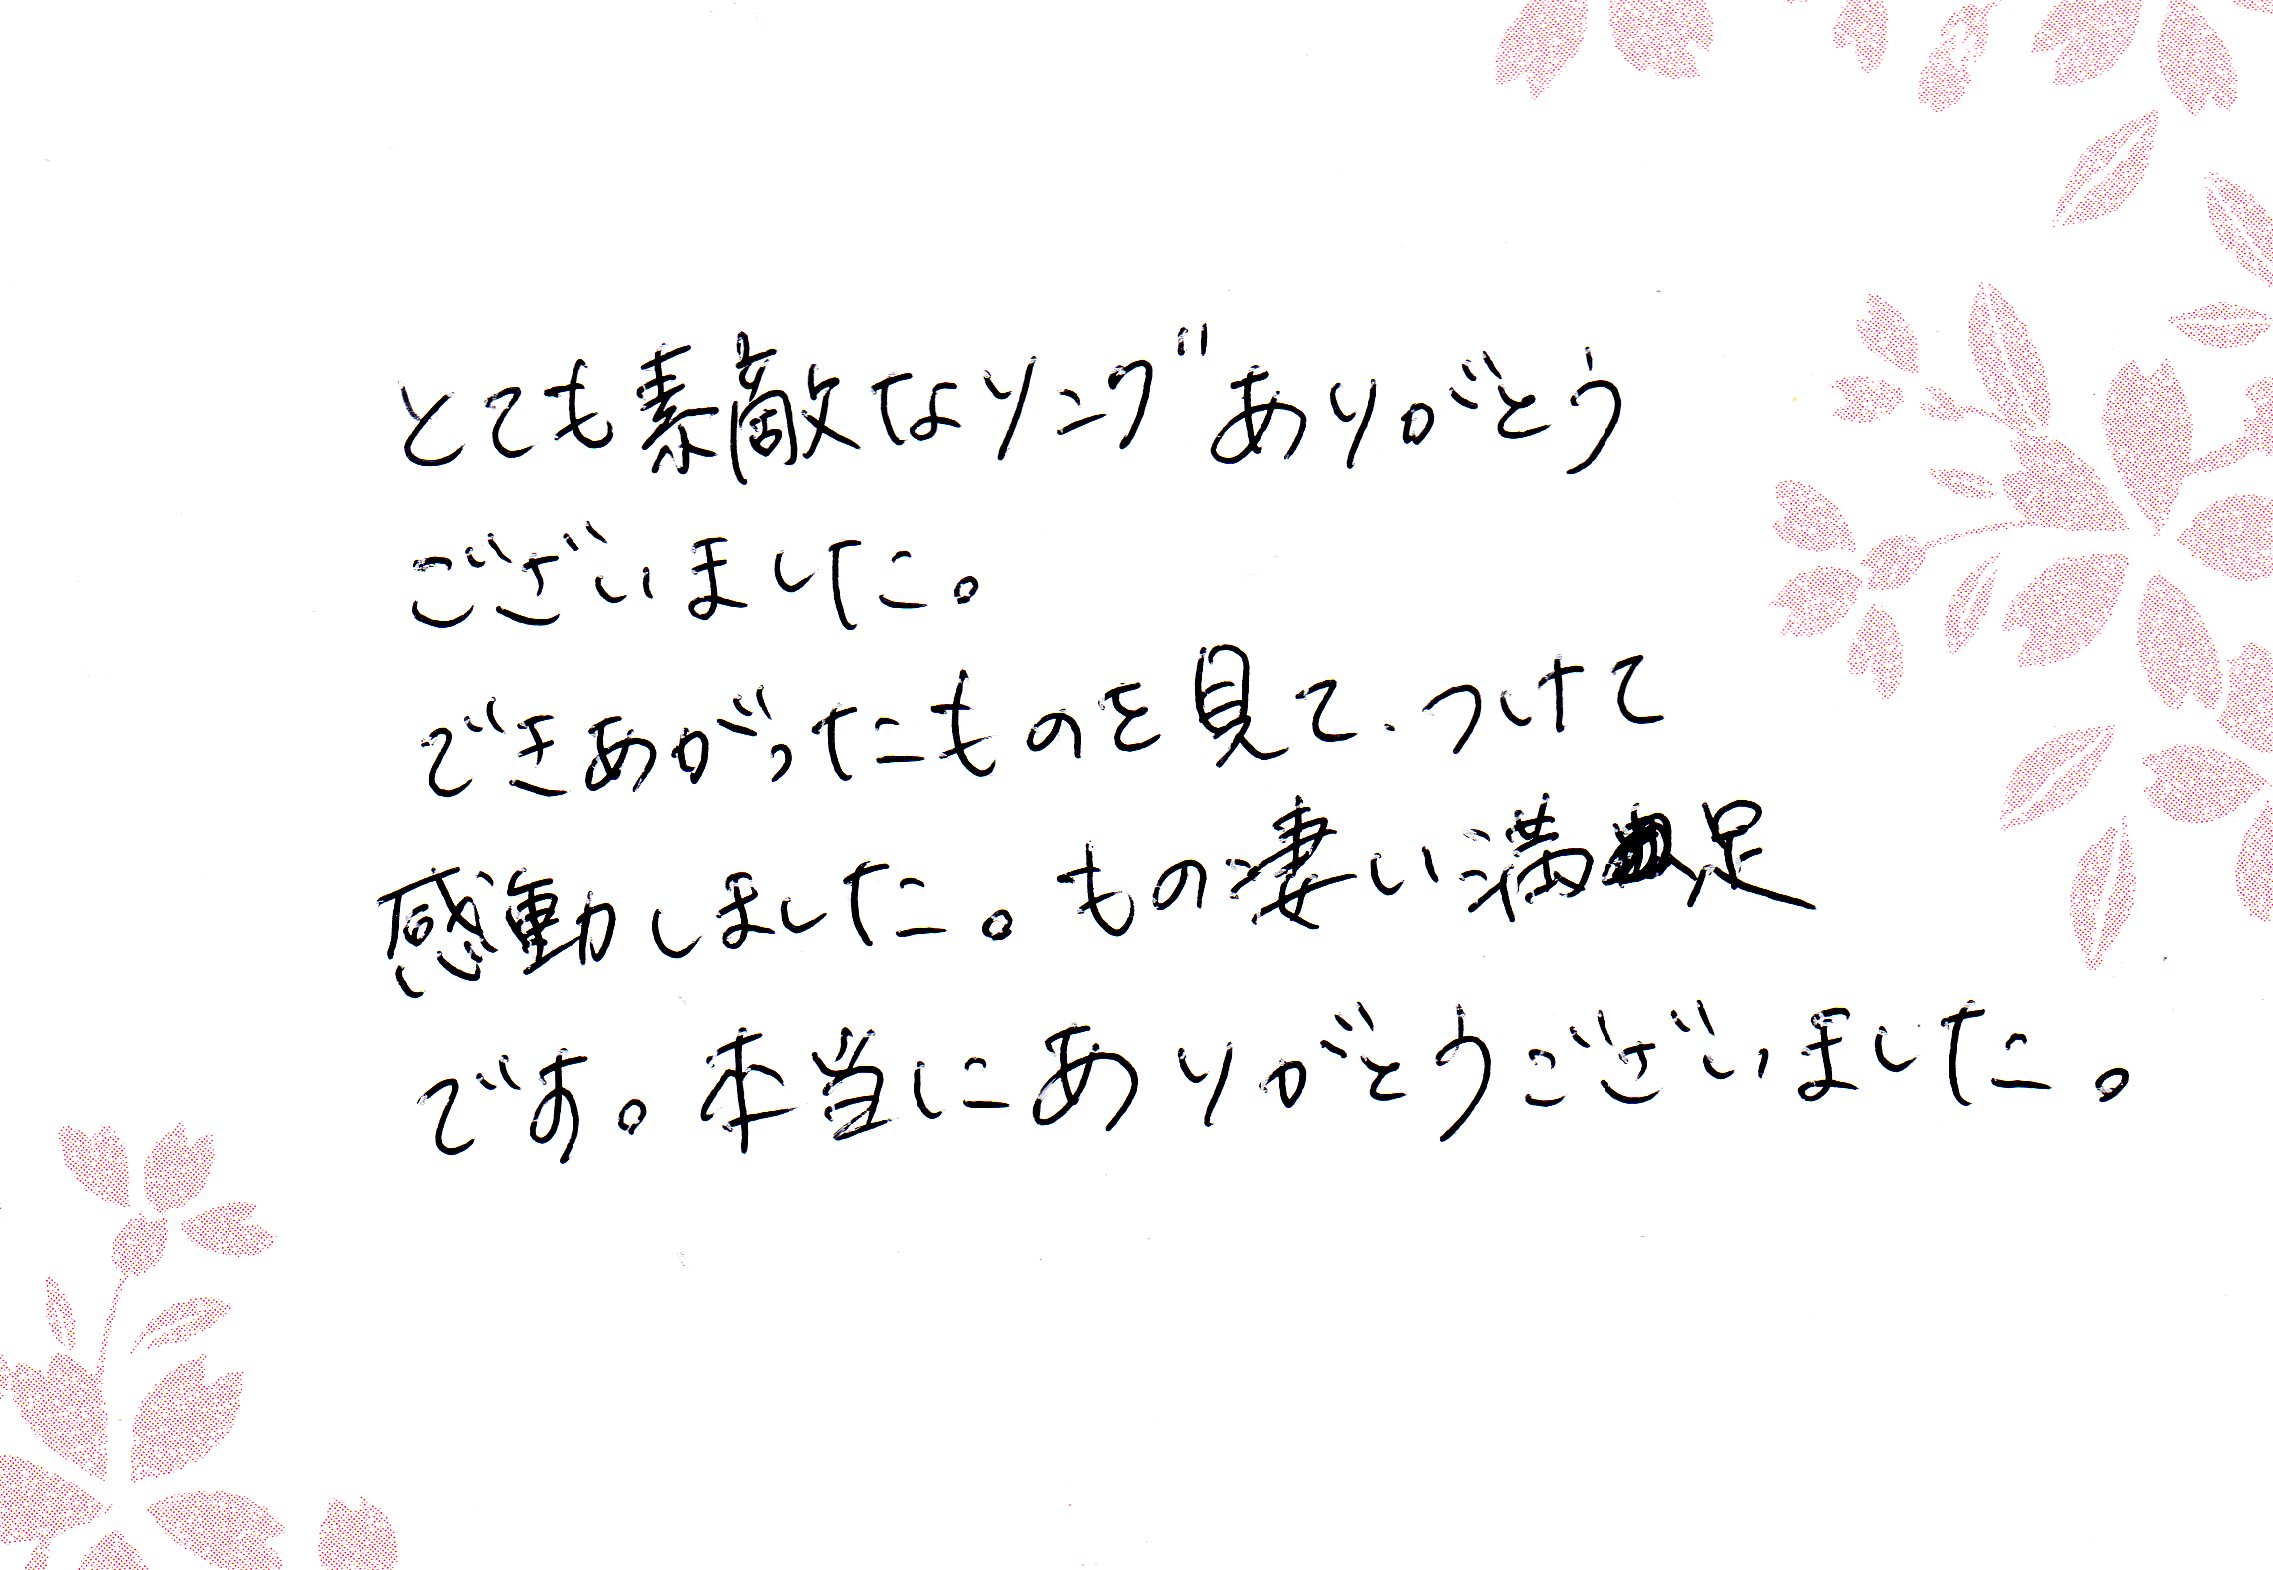 とても素敵なリングありがとう
ございました。
できあがったものを見て、つけて
感動しました。もの凄い満足
です。本当にありがとうございました。